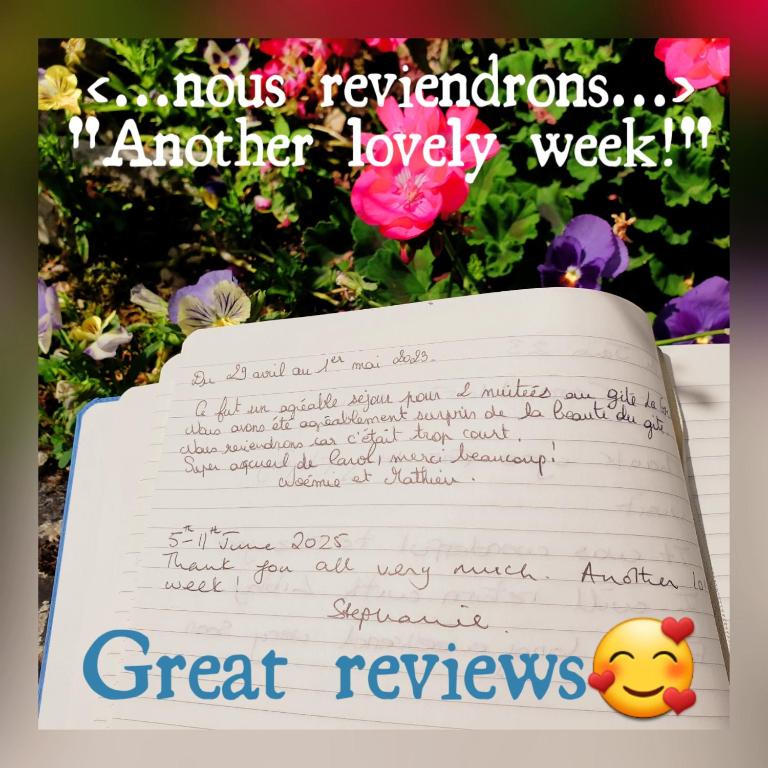 <...nous reviendrons...>
"Another lovely week!"
Du 29 avril au 1er mai 2023.
Ce fut un agréable séjour pour 2 nuitées au gîte La
Nous avons été agréablement surpris de la beauté du gîte.
Nous reviendrons car c'était trop court.
Super accueil de Carol, merci beaucoup!
Noémie et Mathieu.
5th-11th June 2025
Thank you all very much. Another lo
week!
Stephanie.
Great reviews